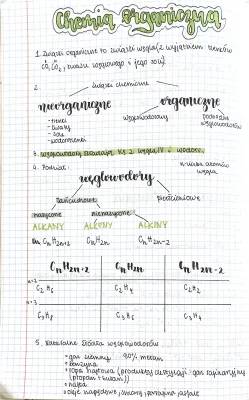 Chemia organiczna
1. Związki organiczne to związki węgla, z wyjątkiem tlenków
CO, CO₂, kwasu węglowego i jego soli
2. związki chemiczne
nieorganiczne
organiczne
- tlenki
- kwasy
- sole
- wodorotlenki
węglowodory
pochodne
węglowodorów
3. węglowodory składają się z węgla IV i wodoru
4. Podział:
n - liczba atomów
węgla
węglowodory
łańcuchowe
pierścieniowe
nasycone
nienasycone
ALKANY
ALKENY
ALKINY
CnH2n+2
CnH2n
CnH2n-2
CnH2n+2
CnH2n
CnH2n-2
n=2
C₂H₆
C₂H₄
C₂H₂
n=3
C₃H₈
C₃H₆
C₃H₄
5. Naturalne źródła węglowodorów
• gaz ziemny 90% metan
• benzyna
• ropa naftowa (produkty destylacji: gaz rafineryjny
(propan + butan))
• nafta
• oleje napędowe, smary, parafina, asfalt